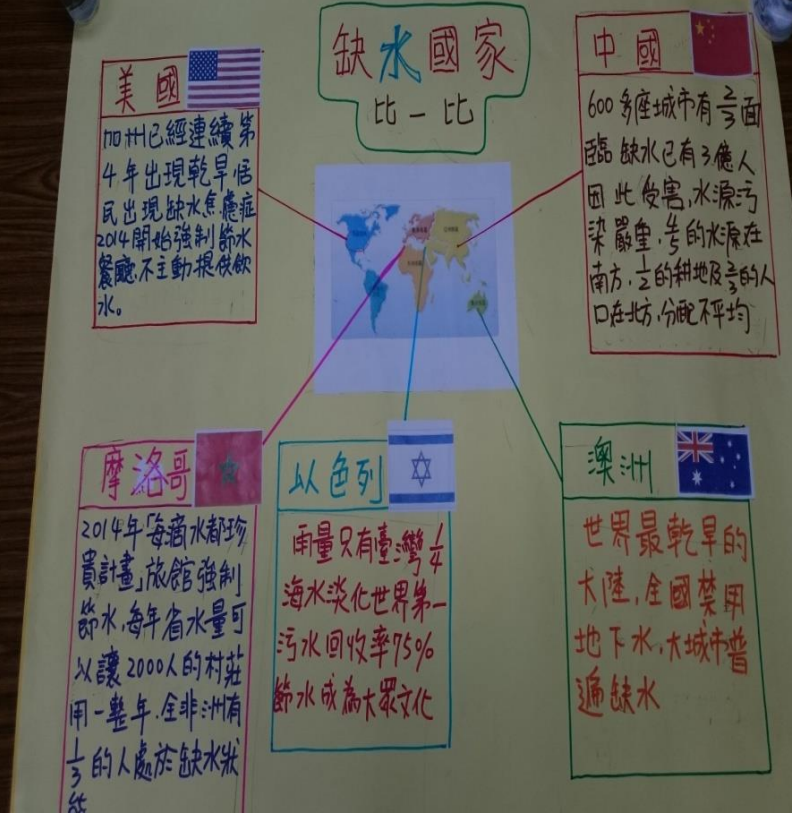 缺水國家
比一比
美國
加州已經連續第
4年出現乾旱居
民出現缺水焦慮症
2014開始強制節水
餐廳不主動提供飲
水。
中國
600多座城市有2/3面
臨缺水已有3億人
因此受害,水源污
染嚴重,4/5的水源在
南方,1/2的耕地及2/3的人
口在北方,分配不平均
摩洛哥
2014年「每滴水都珍
貴計畫」旅館強制
節水,每年省水量可
以讓2000人的村莊
用一整年.全非洲有
1/3的人處於缺水狀
以色列
雨量只有臺灣1/4
海水淡化世界第一
污水回收率75%
節水成為大眾文化
澳洲
世界最乾旱的
大陸,全國禁用
地下水,大城市普
遍缺水